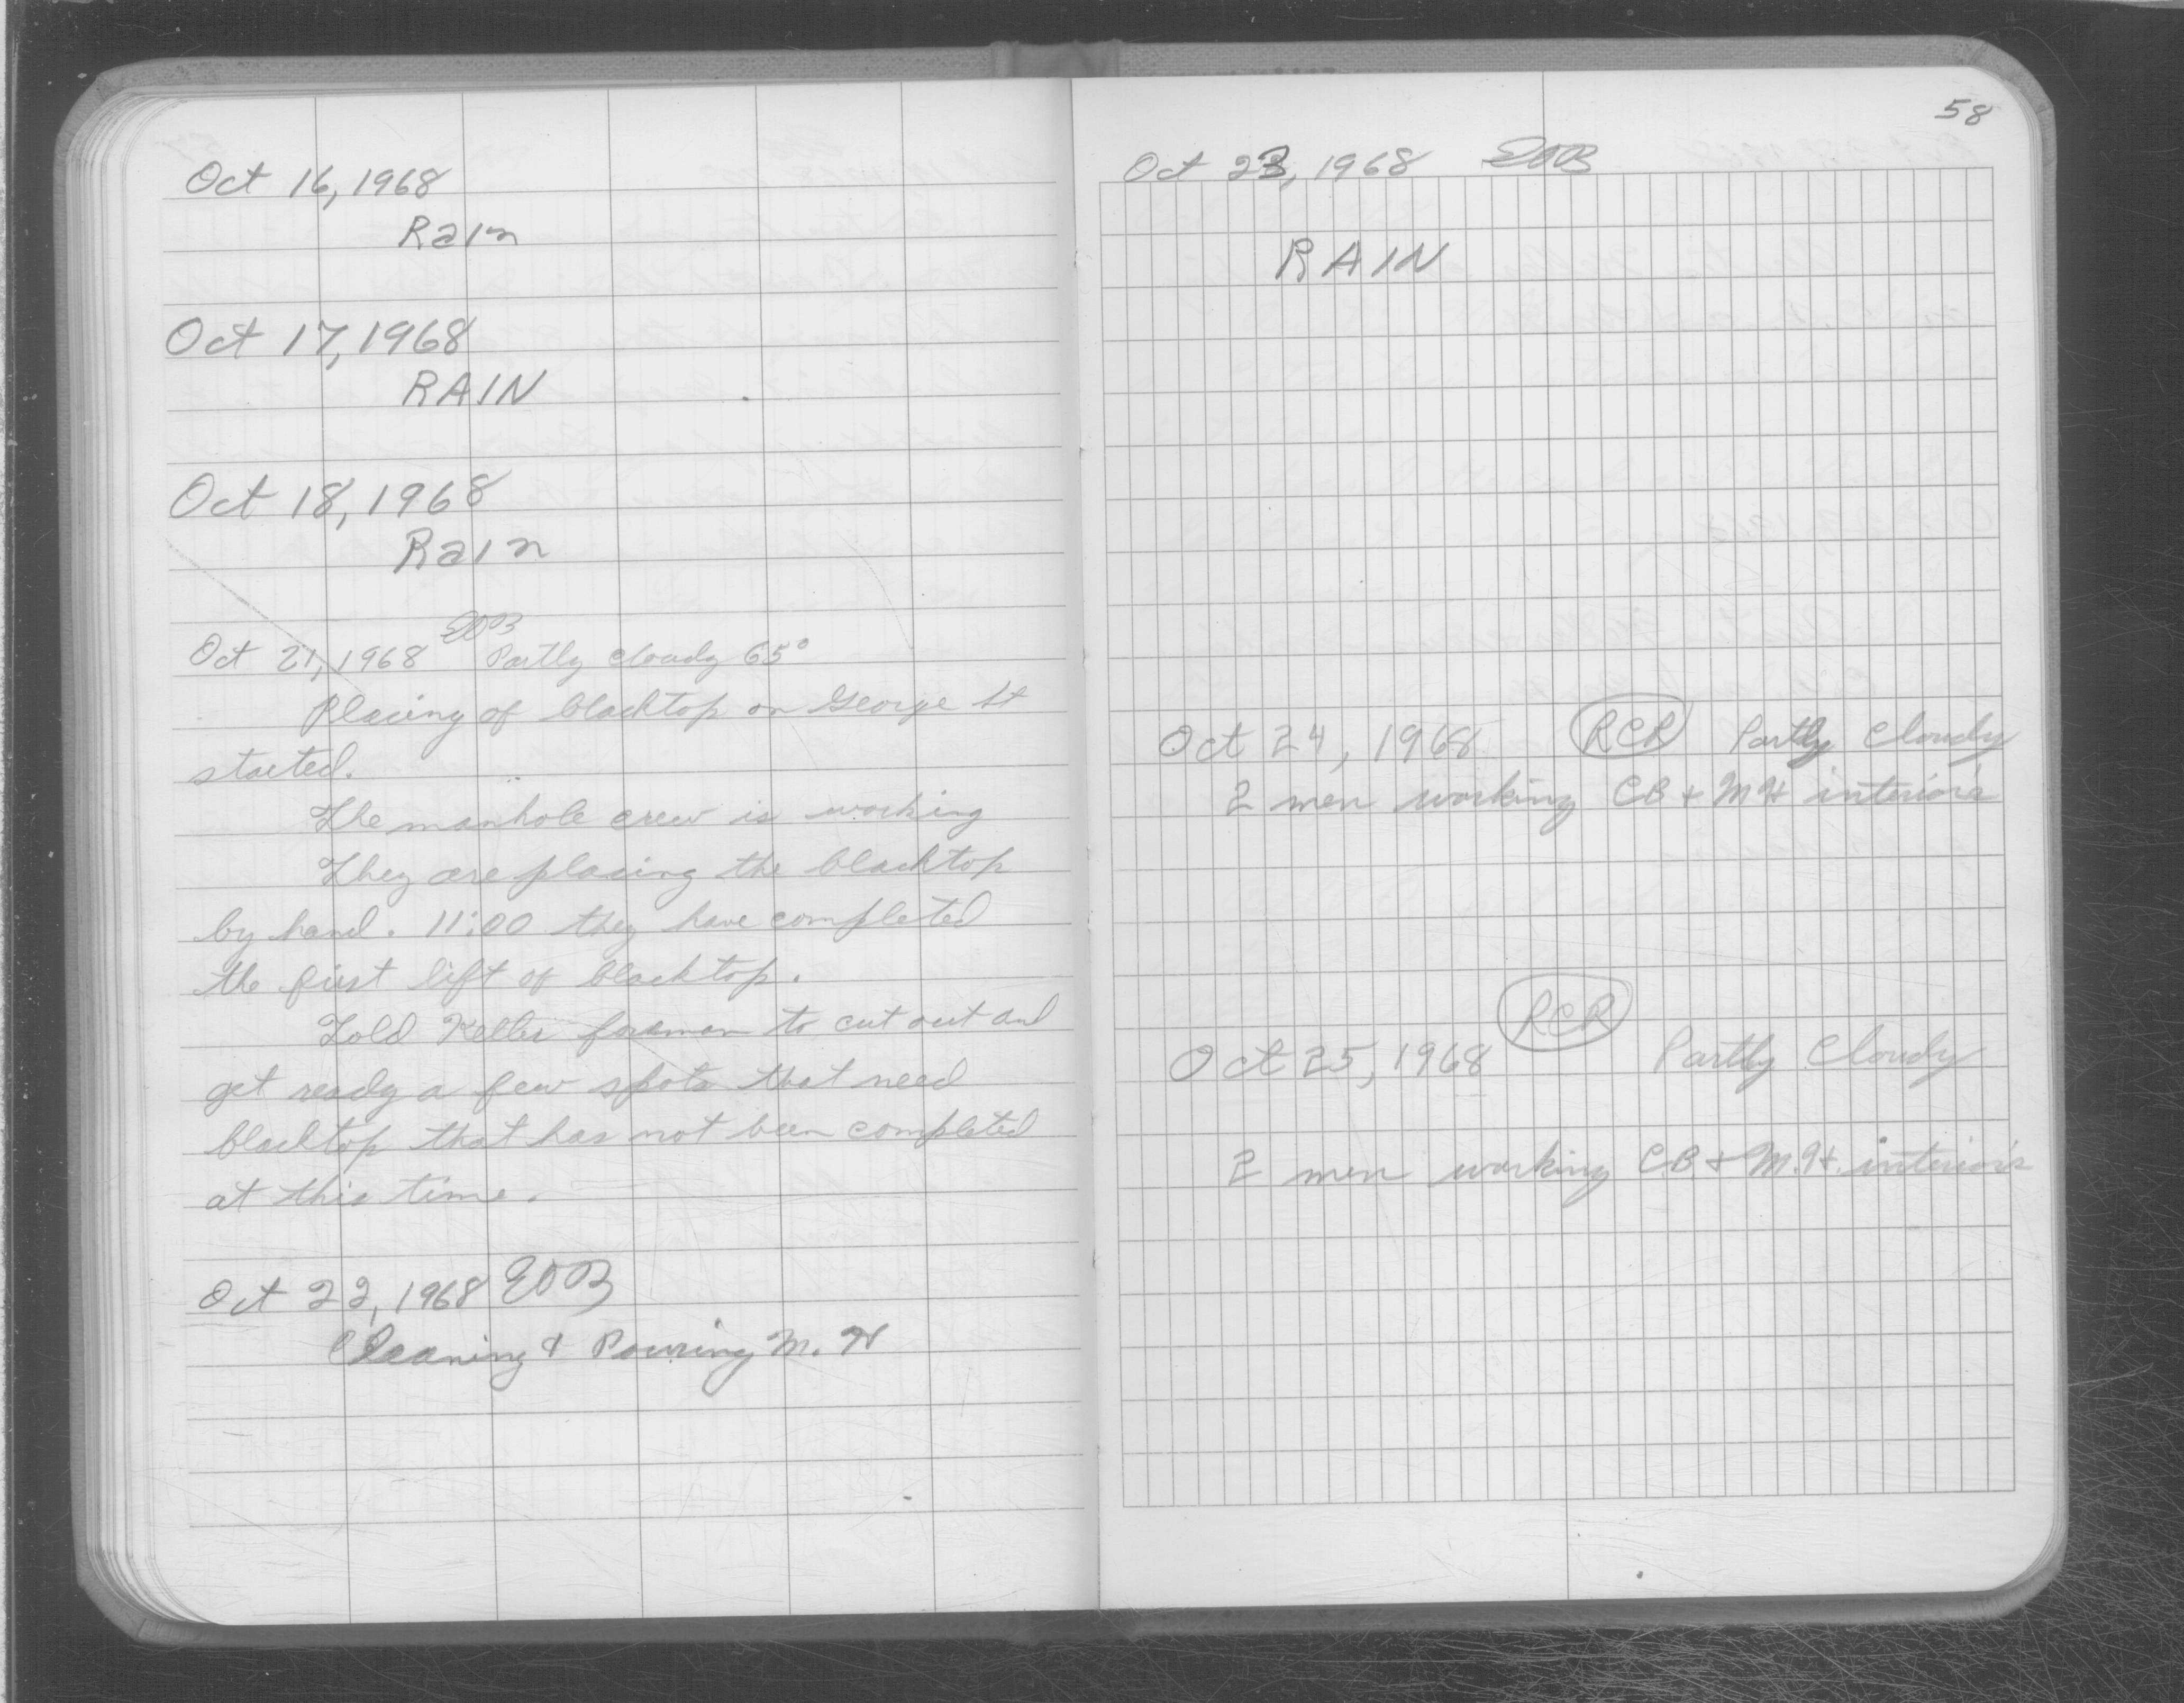 Oct 16, 1968
Rain
Oct 17, 1968
RAIN
Oct 18, 1968
Rain
EOB
Oct 21, 1968 Partly cloudy 65°
Placing of blacktop on George St
started.
The manhole crew is working
They are placing the blacktop
by hand. 11:00 they have completed
the first lift of blacktop.
Told Keller foreman to cut out and
get ready a few spots that need
blacktop that has not been completed
at this time.
Oct 22, 1968 EOB
Cleaning & Pouring M. H
58
Oct 23, 1968 EOB
RAIN
Oct 24, 1968 RCR Partly Cloudy
2 men working CB + MH interiors
RCR
Oct 25, 1968 Partly Cloudy
2 men working C.B. + M.H. interiors